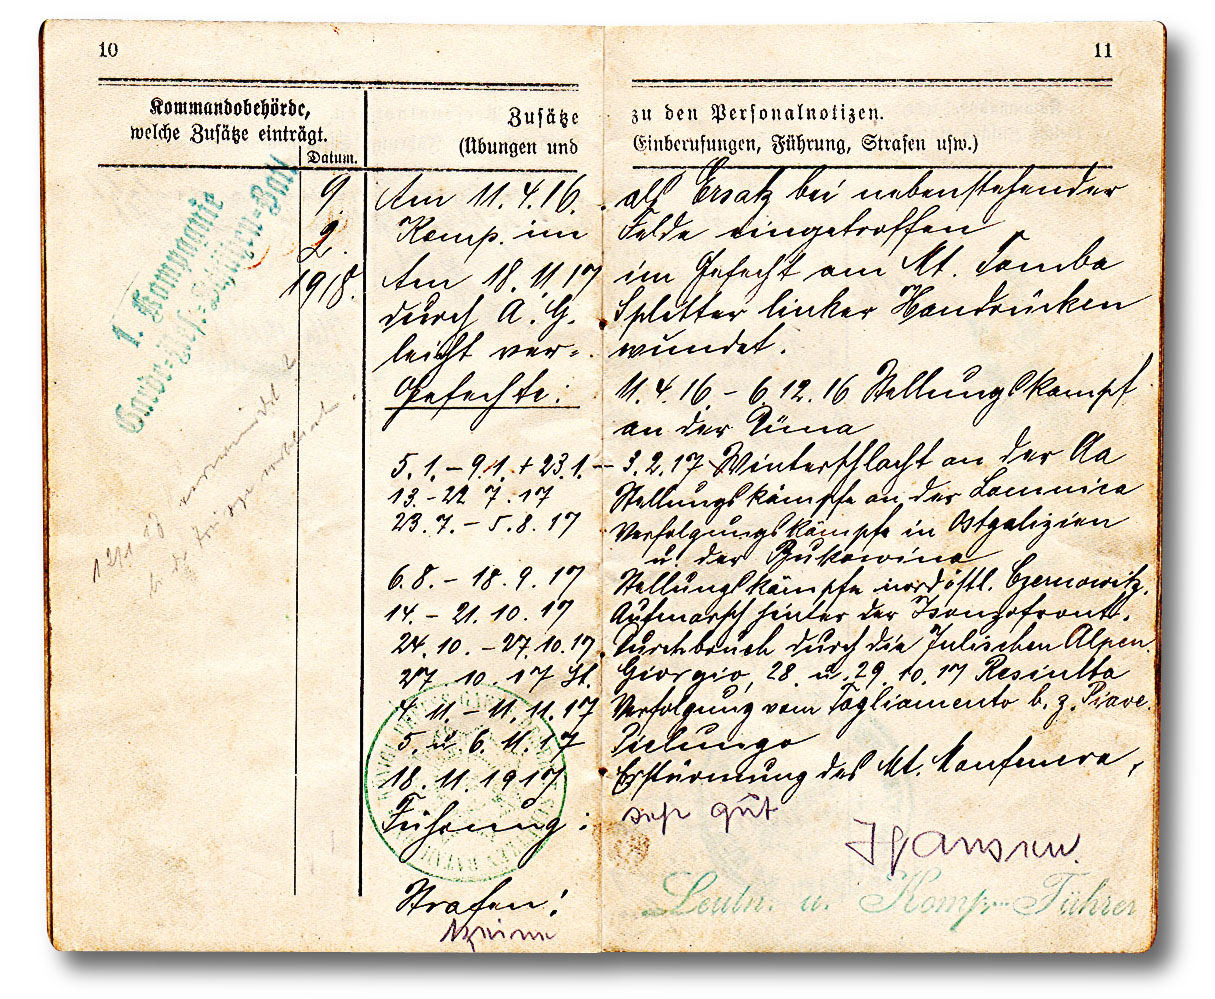 10
11
Kommandobehörde,
welche Zusätze einträgt.
Datum.
Zusätze zu den Personalnotizen.
(Übungen und Einberufungen, Führung, Strafen usw.)
1. Kompagnie
Garde-Res.-Schützen-Batl
9.
2.
1918.
Am 11.4.16. als Ersatz bei nebenstehender
Komp. im Felde eingetroffen
Am 18.11.17 im Gefecht am Mt. Tomba
durch A.G. Splitter linker Handrücken
leicht ver- wundet.
Gefechte: 11.4.16 – 6.12.16 Stellungskampf
an der Düna
5.1. – 9.1. + 23.1. – 3.2.17 Winterschlacht an der Aa
13. – 22 7. 17 Stellungskämpfe an der Lomnica
23.7. – 5.8.17 Verfolgungskämpfe in Ostgalizien
u. der Bukowina
6.8. – 18.9.17 Stellungskämpfe nordöstl. Czernowitz.
14. – 21.10.17 Aufmarsch hinter der Isonzofront.
24.10. – 27.10.17 Durchbruch durch die Julischen Alpen.
27.10.17 St. Giorgio, 28. u. 29.10.17 Resiutta
4.11 – 11.11.17 Verfolgung vom Tagliamento b. z. Piave.
5. u 6.11.17 Pielungo
18.11.1917 Erstürmung des Mt.
Führung: sehr gut
Leutn. u. Komp.-Führer
Strafen:
keine